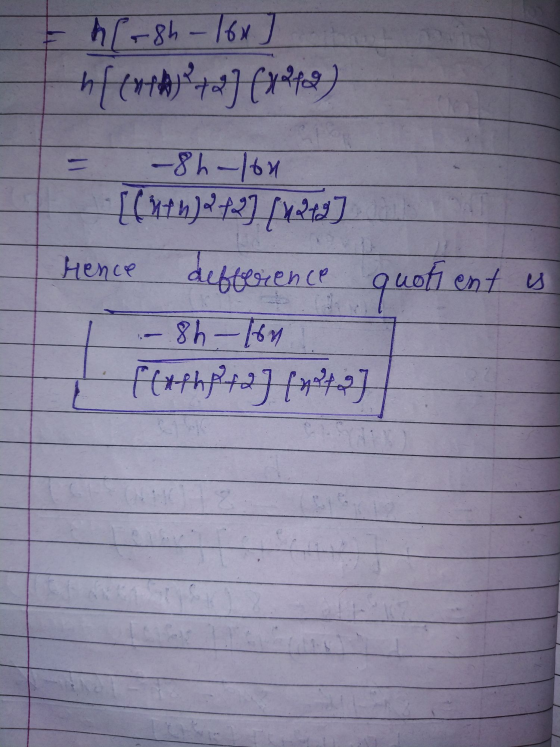 = h[-8h-16x]
h[(x+h)²+2](x²+2)
= -8h-16x
[(x+h)²+2][x²+2]
Hence difference quotient is
-8h-16x
[(x+h)²+2][x²+2]